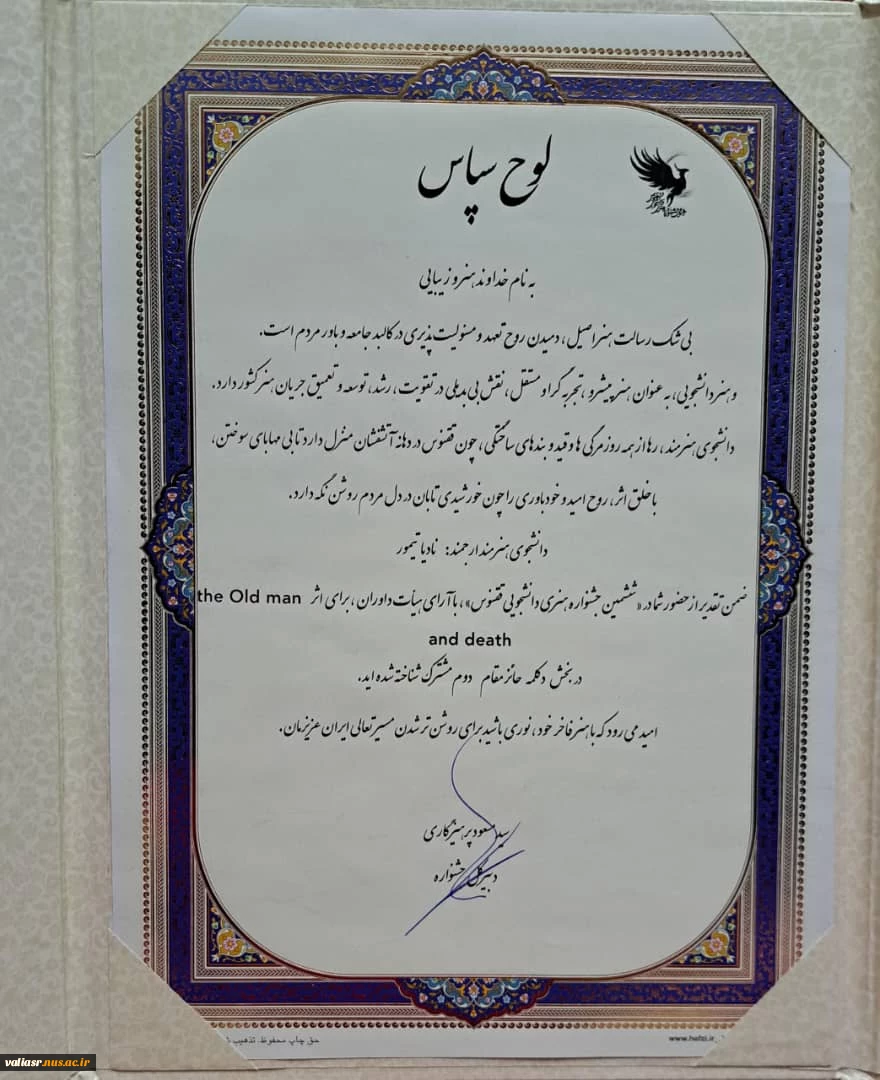 لوح سپاس
به نام خداوند هنر و زیبایی
بی شک رسالت هنر اصیل، دمیدن روح تعهد و مسئولیت پذیری در کالبد جامعه و باور مردم است.
و هنر دانشجویی، به عنوان هنر پیشرو، تجربه گرا و مستقل، نقش بی بدیلی در تقویت، رشد، توسعه و تعمیق جریان هنر کشور دارد.
دانشجوی هنرمند، رها از همه روزمرگی ها و قید و بندهای ساختگی، چون ققنوس در دهانۀ آتشفشان منزل دارد تا بی مهابای سوختن،
با خلق اثر، روح امید و خودباوری را چون خورشیدی تابان در دل مردم روشن نگه دارد.
دانشجوی هنرمند ارجمند: نادیا تیمور
ضمن تقدیر از حضور شما در «ششمین جشنواره هنری دانشجویی ققنوس»، با آرای هیأت داوران، برای اثر the Old man
and death
در بخش دکلمه حائز مقام دوم مشترک شناخته شده اید.
امید می رود که با هنر فاخر خود، نوری باشید برای روشن تر شدن مسیر تعالی ایران عزیزمان.
سید مسعود پرهیزکاری
دبیر کل جشنواره
حق چاپ محفوظ. تذهیب
www.hefzi.ir
valiasr.nus.ac.ir